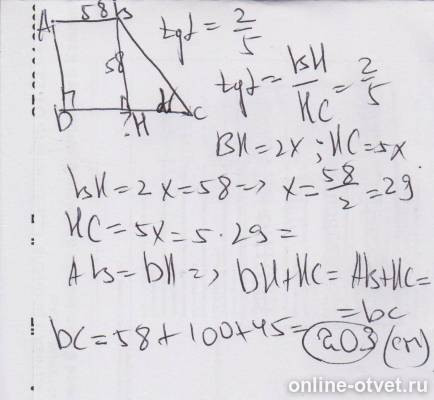 A 58 B
58
D H α C
?
tgα = 2/5
tgα = BH/HC = 2/5
BH = 2x ; HC = 5x
BH = 2x = 58 => x = 58/2 = 29
HC = 5x = 5 · 29 =
AB = DH => DH + HC = AB + HC =
= DC
DC = 58 + 100 + 45 = 203 (cm)
online-otvet.ru